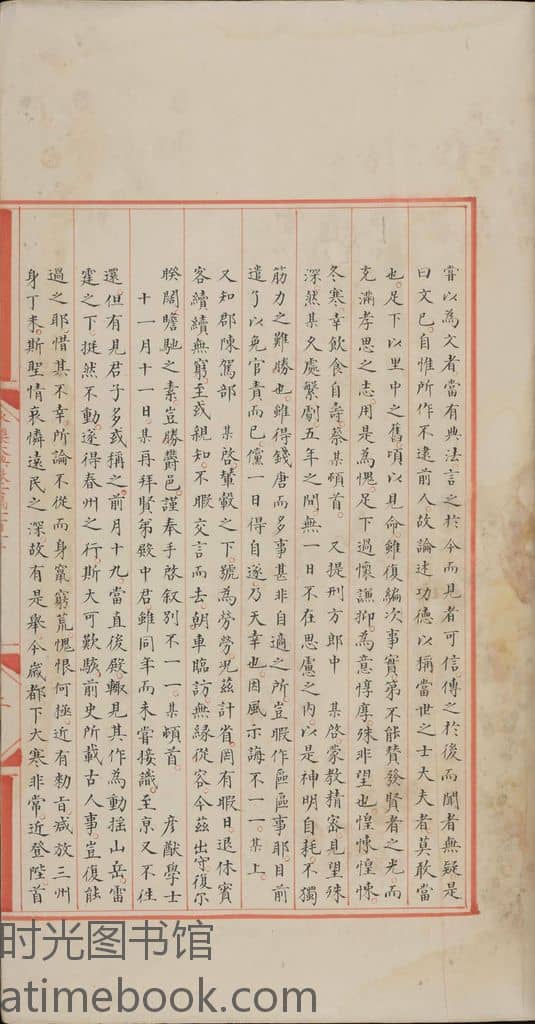 嘗以為文者當有典法言之於今而見者可信傳之於後而聞者無疑是
曰文已自惟所作不逮前人故論述功德以稱當世之士大夫者莫敢當
也足下以里中之舊頃以見命雖復編次事實第不能贊發賢者之光而
充滿孝思之志用是為愧足下過懷謙抑為意惇厚殊非望也惶悚惶悚
冬寒幸飲食自壽蔡某頓首 又提刑方郎中 某啓蒙教精密見望殊
深然某久處繁劇五年之間無一日不在思慮之內以是神明自耗不獨
筋力之難勝也雖得錢唐而多事甚非自適之所豈暇作區區事耶目前
遣了以免官責而已儻一日得自遂乃天幸也因風示誨不一一某上
又知郡陳駕部 某啓輦轂之下號為勞勞況茲計省罔有暇日退休賓
客續續無窮至或親知不暇交言而去朝車臨訪無緣從容今茲出守復尔
睽闊瞻馳之素豈勝欝邑謹奉手啓叙別不一一某頓首 彦猷學士
十一月十一日某再拜賢弟殿中君雖同年而未嘗接識至京又不往
還但有見君子多或稱之前月十九當直後殿輙見其作為動揺山岳雷
霆之下挺然不動遂得春州之行斯大可歎駭前史所載古人事豈復能
過之耶惜甚不幸所論不從而身竄窮荒愧恨何極近有勅旨减放三州
身丁米斯聖情哀憐遠民之深故有是舉今歲都下大寒非常近登陛首
时光图书馆
atimebook.com